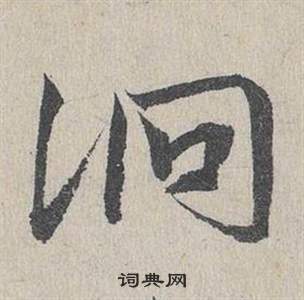 泂
词典网